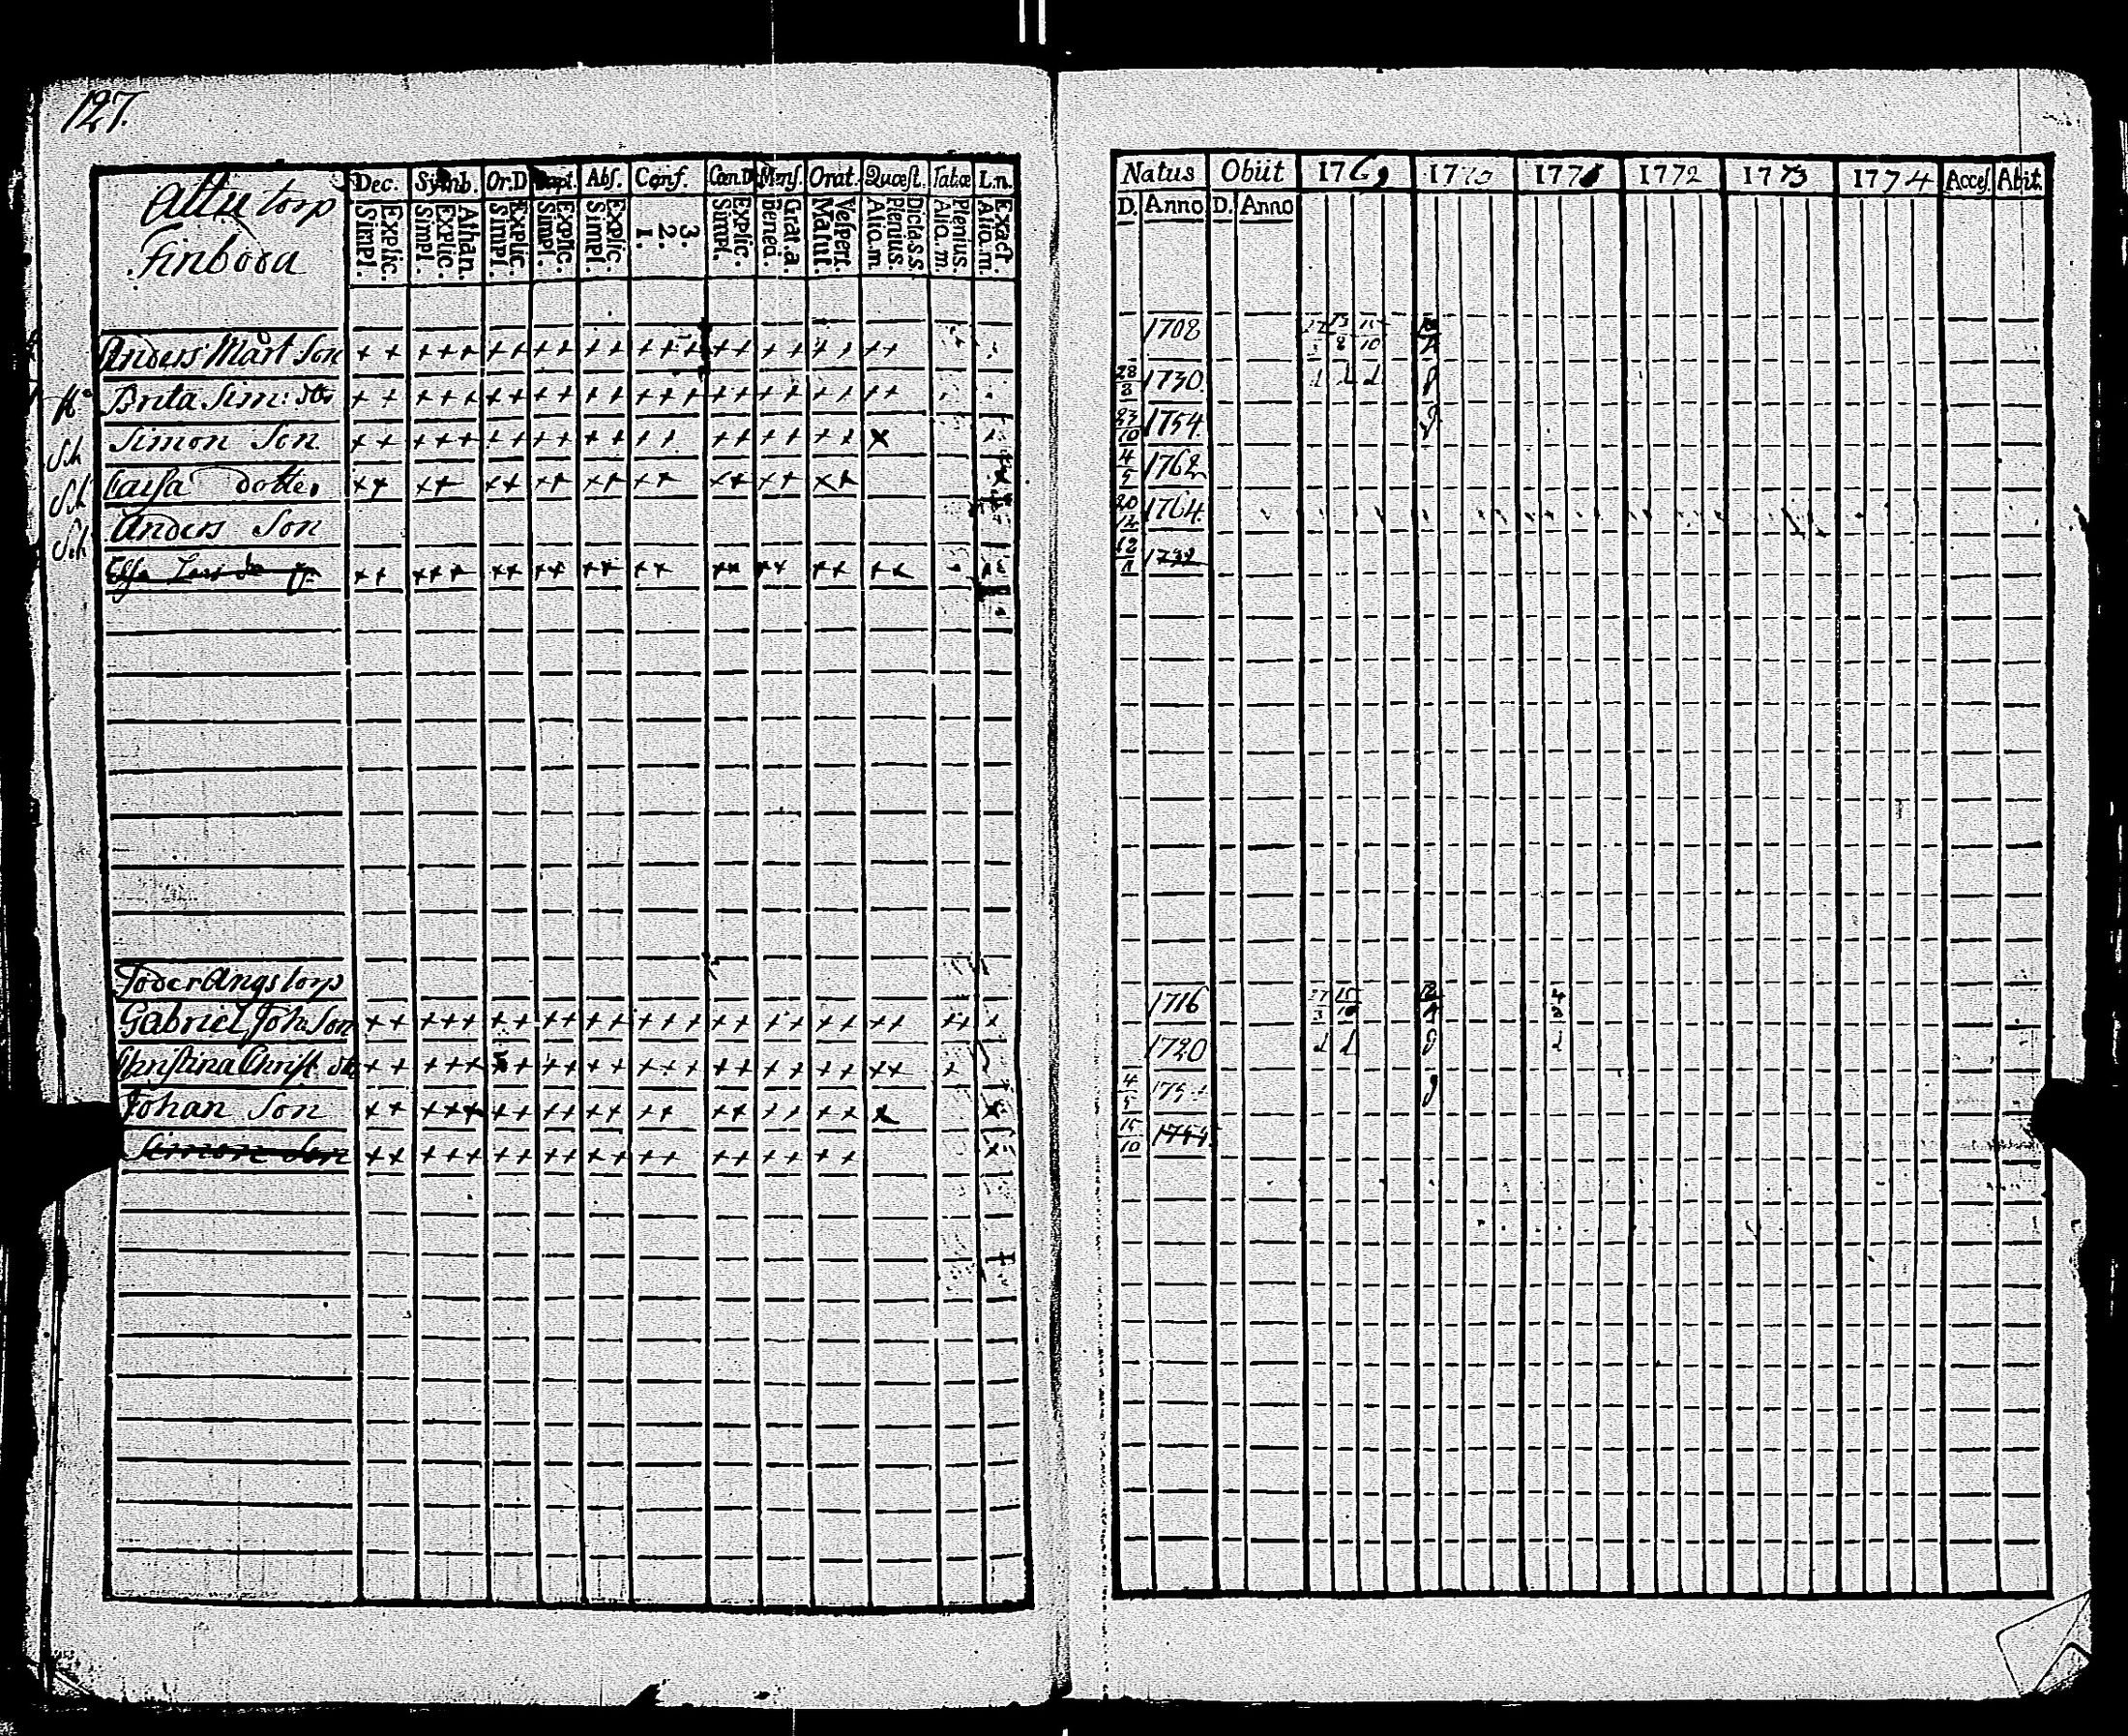 127.
Attu torp
Finböda
Dec. Symb. Or.D Bapt. Abs. Conf. Cœn.D Mens. Orat. Quæst. Tabæ L.n.
Simpl. Explic. Simpl. Explic. Athan. Simpl. Explic. Simpl. Explic. Simpl. Explic. 1. 2. 3. Simpl. Explic. Bened. Grat.a. Matut. Vespert. Aliq.m. Plenius. Dicta.s.s. Aliq.m. Plenius. Aliq.m. Exact.
Natus Obiit 1769 1770 1771 1772 1773 1774 Acces. Abit.
D. Anno D. Anno
Anders Mårt Son ++ +++ ++ ++ ++ +++ ++ ++ ++ ++ 1708
Brita Sim: dtr ++ +++ ++ ++ ++ +++ ++ ++ ++ ++ 28/8 1730
Sh Simon Son ++ +++ ++ ++ ++ ++ ++ ++ ++ x 23/10 1754
Sh Caisa dotter ++ ++ ++ ++ ++ ++ ++ ++ ++ 4/5 1762
Sh Anders Son 20/12 1764
++ +++ ++ ++ ++ ++ ++ ++ ++ ++ 12/1
Söderängstorp
Gabriel Joh. Son ++ +++ ++ ++ ++ +++ ++ ++ ++ ++ ++ + 1716
Christina Christ dtr ++ +++ ++ ++ ++ +++ ++ ++ ++ ++ + 1720
Johan Son ++ +++ ++ ++ ++ ++ ++ ++ ++ x 4/5
Simon Son ++ +++ ++ ++ ++ ++ ++ ++ ++ 15/10